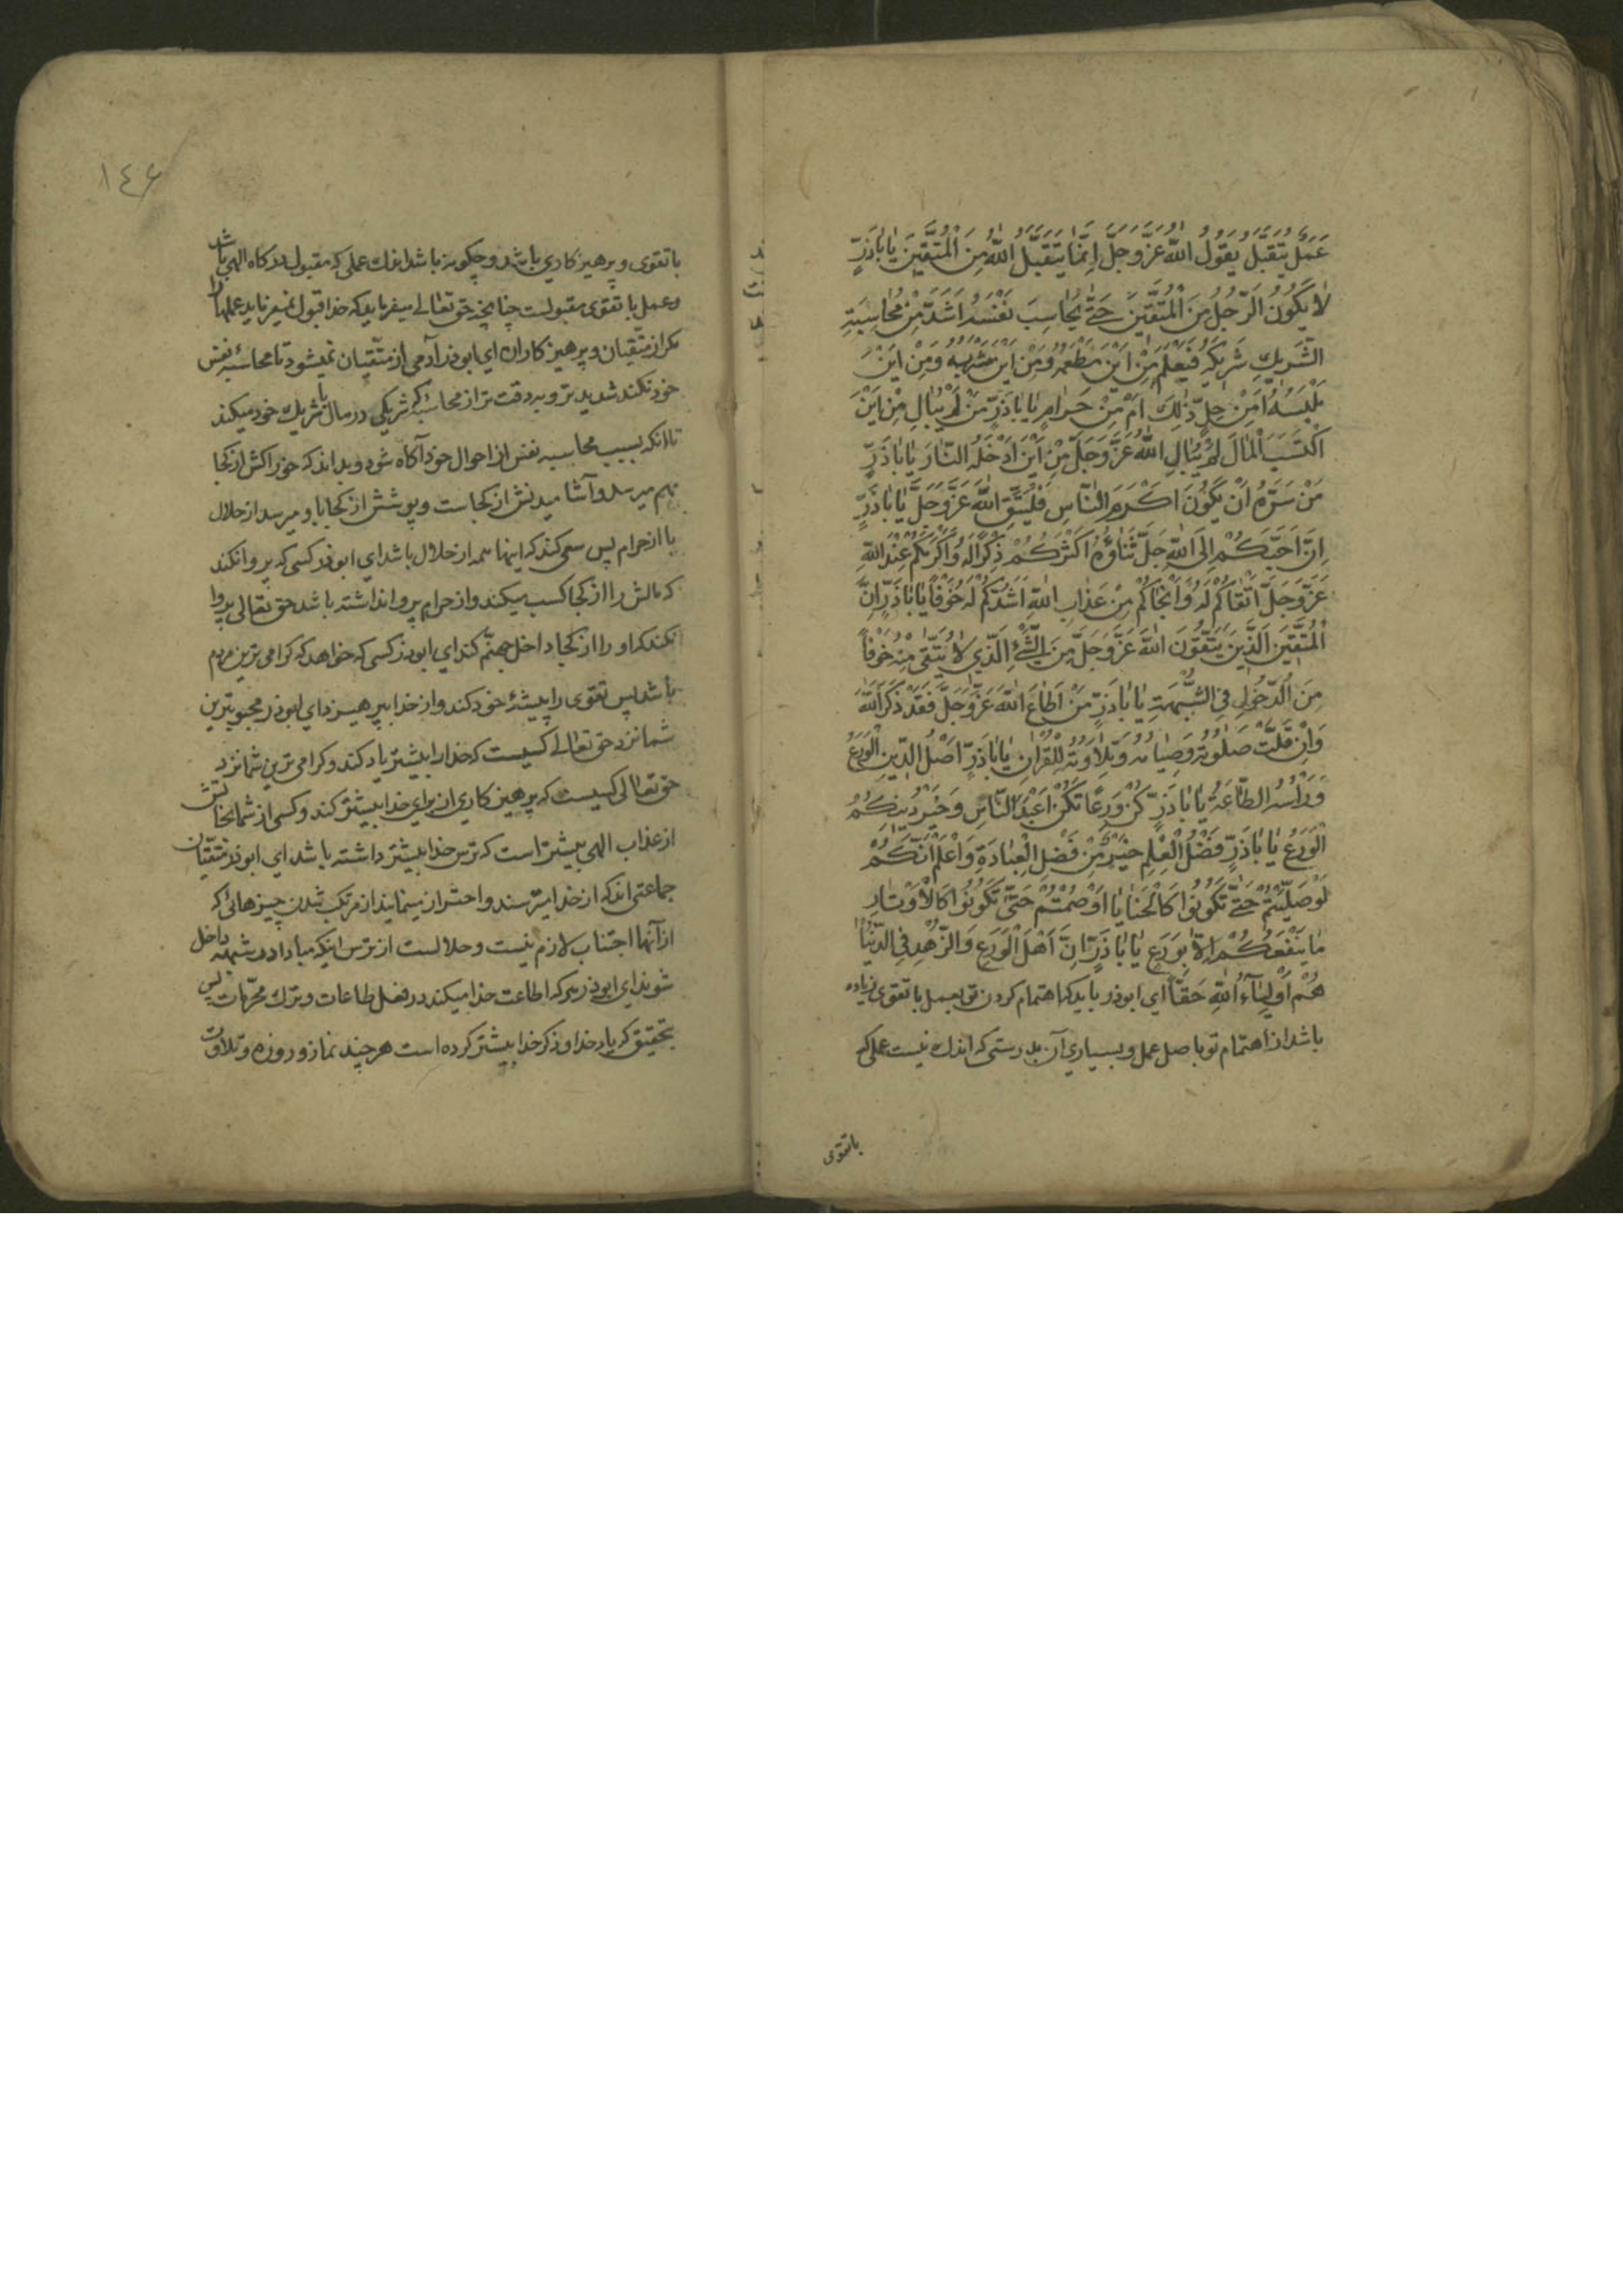 عَمَلٌ يُتَقَبَّلُ يَقُولُ اللّٰهُ عَزَّ وَجَلَّ اِنَّمَا يَتَقَبَّلُ اللّٰهُ مِنَ الْمُتَّقِينَ يَا بَاذَرٍّ
لَا يَكُونُ الرَّجُلُ مِنَ الْمُتَّقِينَ حَتّٰى يُحَاسِبَ نَفْسَهُ اَشَدَّ مِنْ مُحَاسَبَةِ
الشَّرِيكِ شَرِيكَهُ فَيَعْلَمَ مِنْ اَيْنَ مَطْعَمُهُ وَمِنْ اَيْنَ مَشْرَبُهُ وَمِنْ اَيْنَ
مَلْبَسُهُ اَمِنْ حِلٍّ ذٰلِكَ اَمْ مِنْ حَرَامٍ يَا بَاذَرٍّ مَنْ لَمْ يُبَالِ مِنْ اَيْنَ
اكْتَسَبَ الْمَالَ لَمْ يُبَالِ اللّٰهُ عَزَّ وَجَلَّ مِنْ اَيْنَ اَدْخَلَهُ النَّارَ يَا بَاذَرٍّ
مَنْ سَرَّهُ اَنْ يَكُونَ اَكْرَمَ النَّاسِ فَلْيَتَّقِ اللّٰهَ عَزَّ وَجَلَّ يَا بَاذَرٍّ
اِنَّ اَحَبَّكُمْ اِلَى اللّٰهِ جَلَّ ثَنَاؤُهُ اَكْثَرُكُمْ ذِكْرًا لَهُ وَاَكْرَمَكُمْ عِنْدَ اللّٰهِ
عَزَّ وَجَلَّ اَتْقَاكُمْ لَهُ وَاَنْجَاكُمْ مِنْ عَذَابِ اللّٰهِ اَشَدُّكُمْ لَهُ خَوْفًا يَا بَاذَرٍّ اِنَّ
الْمُتَّقِينَ الَّذِينَ يَتَّقُونَ اللّٰهَ عَزَّ وَجَلَّ مِنَ الشَّيْءِ الَّذِي لَا يُتَّقٰى مِنْهُ خَوْفًا
مِنَ الدُّخُولِ فِي الشُّبْهَةِ يَا بَاذَرٍّ مَنْ اَطَاعَ اللّٰهَ عَزَّ وَجَلَّ فَقَدْ ذَكَرَ اللّٰهَ
وَاِنْ قَلَّتْ صَلٰوتُهُ وَصِيَامُهُ وَتِلَاوَتُهُ لِلْقُرْاٰنِ يَا بَاذَرٍّ اَصْلُ الدِّينِ الْوَرَعُ
وَرَاْسُهُ الطَّاعَةُ يَا بَاذَرٍّ كُنْ وَرِعًا تَكُنْ اَعْبَدَ النَّاسِ وَخَيْرُ دِينِكُمُ
الْوَرَعُ يَا بَاذَرٍّ فَضْلُ الْعِلْمِ خَيْرٌ مِنْ فَضْلِ الْعِبَادَةِ وَاعْلَمْ اَنَّكُمْ
لَوْ صَلَّيْتُمْ حَتّٰى تَكُونُوا كَالْحَنَايَا اَوْ صُمْتُمْ حَتّٰى تَكُونُوا كَالْاَوْتَارِ
مَا يَنْفَعُكُمْ اِلَّا بِوَرَعٍ يَا بَاذَرٍّ اِنَّ اَهْلَ الْوَرَعِ وَالزُّهْدِ فِي الدُّنْيَا
هُمْ اَوْلِيَاءُ اللّٰهِ حَقًّا اي ابوذر بايد كه اهتمام كردن تو بعمل با تقوى زياده
باشد از اهتمام تو باصل عمل و بسياري آن بدرستى كه اندك نيست عملى كه
باتقوى
١٤٦
با تقوى و پرهيز كاري باشد و چكونه باشد اندك عملى كه مقبول دركاه الهى باشد
و عمل با تقوى مقبولست چنانچه حق تعالى ميفرمايد كه خدا قبول نميفرمايد عملها را
مكر از متّقيان و پرهيز كاران اي ابوذر آدمى از متّقيان نميشود تا محاسبهٔ نفس
خود نكند شديدتر و به دقت تر از محاسبهٔ كه شريكى در مال با شريك خود ميكند
تا انكه بسبب محاسبه نفس از احوال خود آكاه شود و بداند كه خوراكش از كجا
بهم ميرسد و آشاميدنش از كجاست و پوشش از كجا باو ميرسد از حلال
يا از حرام پس سعى كند كه اينها همه از حلال باشد اي ابوذر كسى كه پروا نكند
كه مالش را از كجا كسب ميكند و از حرام پروا نداشته باشد حق تعالى پروا
نكند كه او را از كجا داخل جهنّم كند اي ابوذر كسى كه خواهد كه كرامى ترين مردم
باشد پس تقوى را پيشهٔ خود كند و از خدا بپرهيزد اي ابوذر محبوبترين
شما نزد حق تعالى كسيست كه خدا را بيشتر ياد كند و كرامى ترين شما نزد
حق تعالى كسيست كه پرهيز كاري از براي خدا بيشتر كند و كسى از شما نجاتش
از عذاب الهى بيشتر است كه ترس خدا بيشتر داشته باشد اي ابوذر متّقيان
جماعتى اند كه از خدا ميترسند و احتراز مينمايند از مرتكب شدن چيزهائى كه
از آنها اجتناب لازم نيست و حلالست از ترس اينكه مبادا در شبهه داخل
شوند اي ابوذر هركه اطاعت خدا ميكند در فعل طاعات و ترك محرّمات پس
بتحقيق كه ياد خدا و ذكر خدا بيشتر كرده است هرچند نماز و روزه و تلاوت